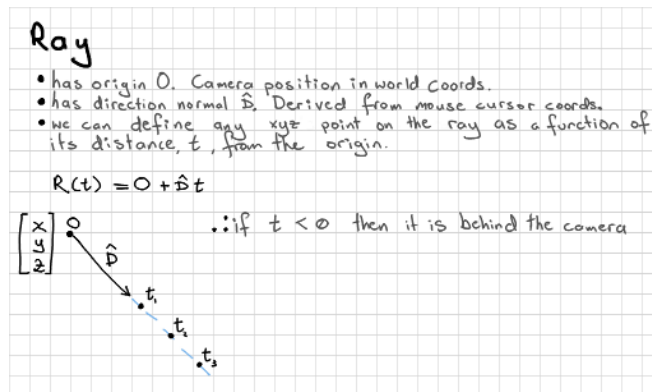 Ray
• has origin O. Camera position in world coords.
• has direction normal D̂. Derived from mouse cursor coords.
• we can define any xyz point on the ray as a function of
its distance, t, from the origin.
R(t) = O + D̂t
∴ if t < 0 then it is behind the camera
[x
y
z]
O
D̂
t₁
t₂
t₃